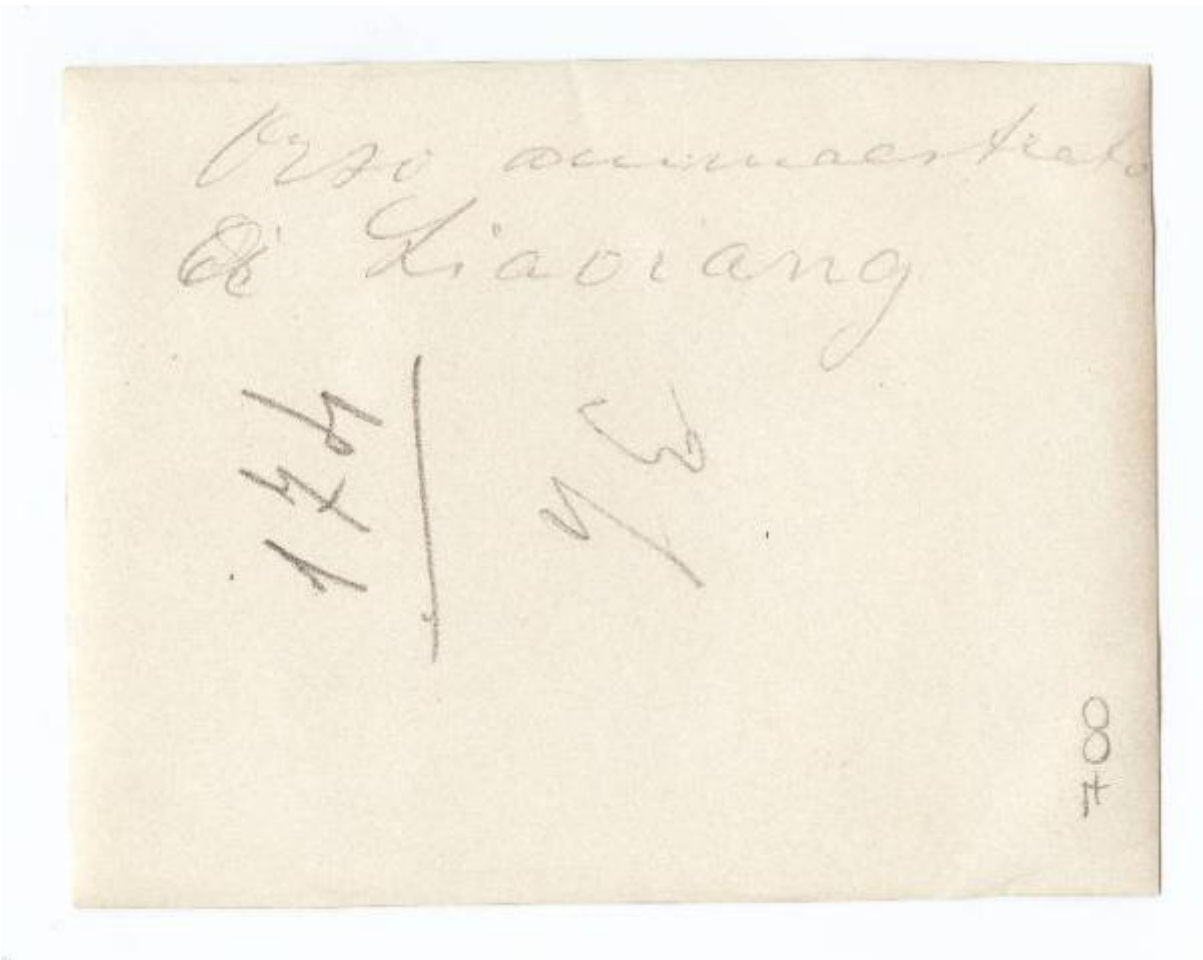 Orso ammaestrato
di Liaoiang
174
73
700